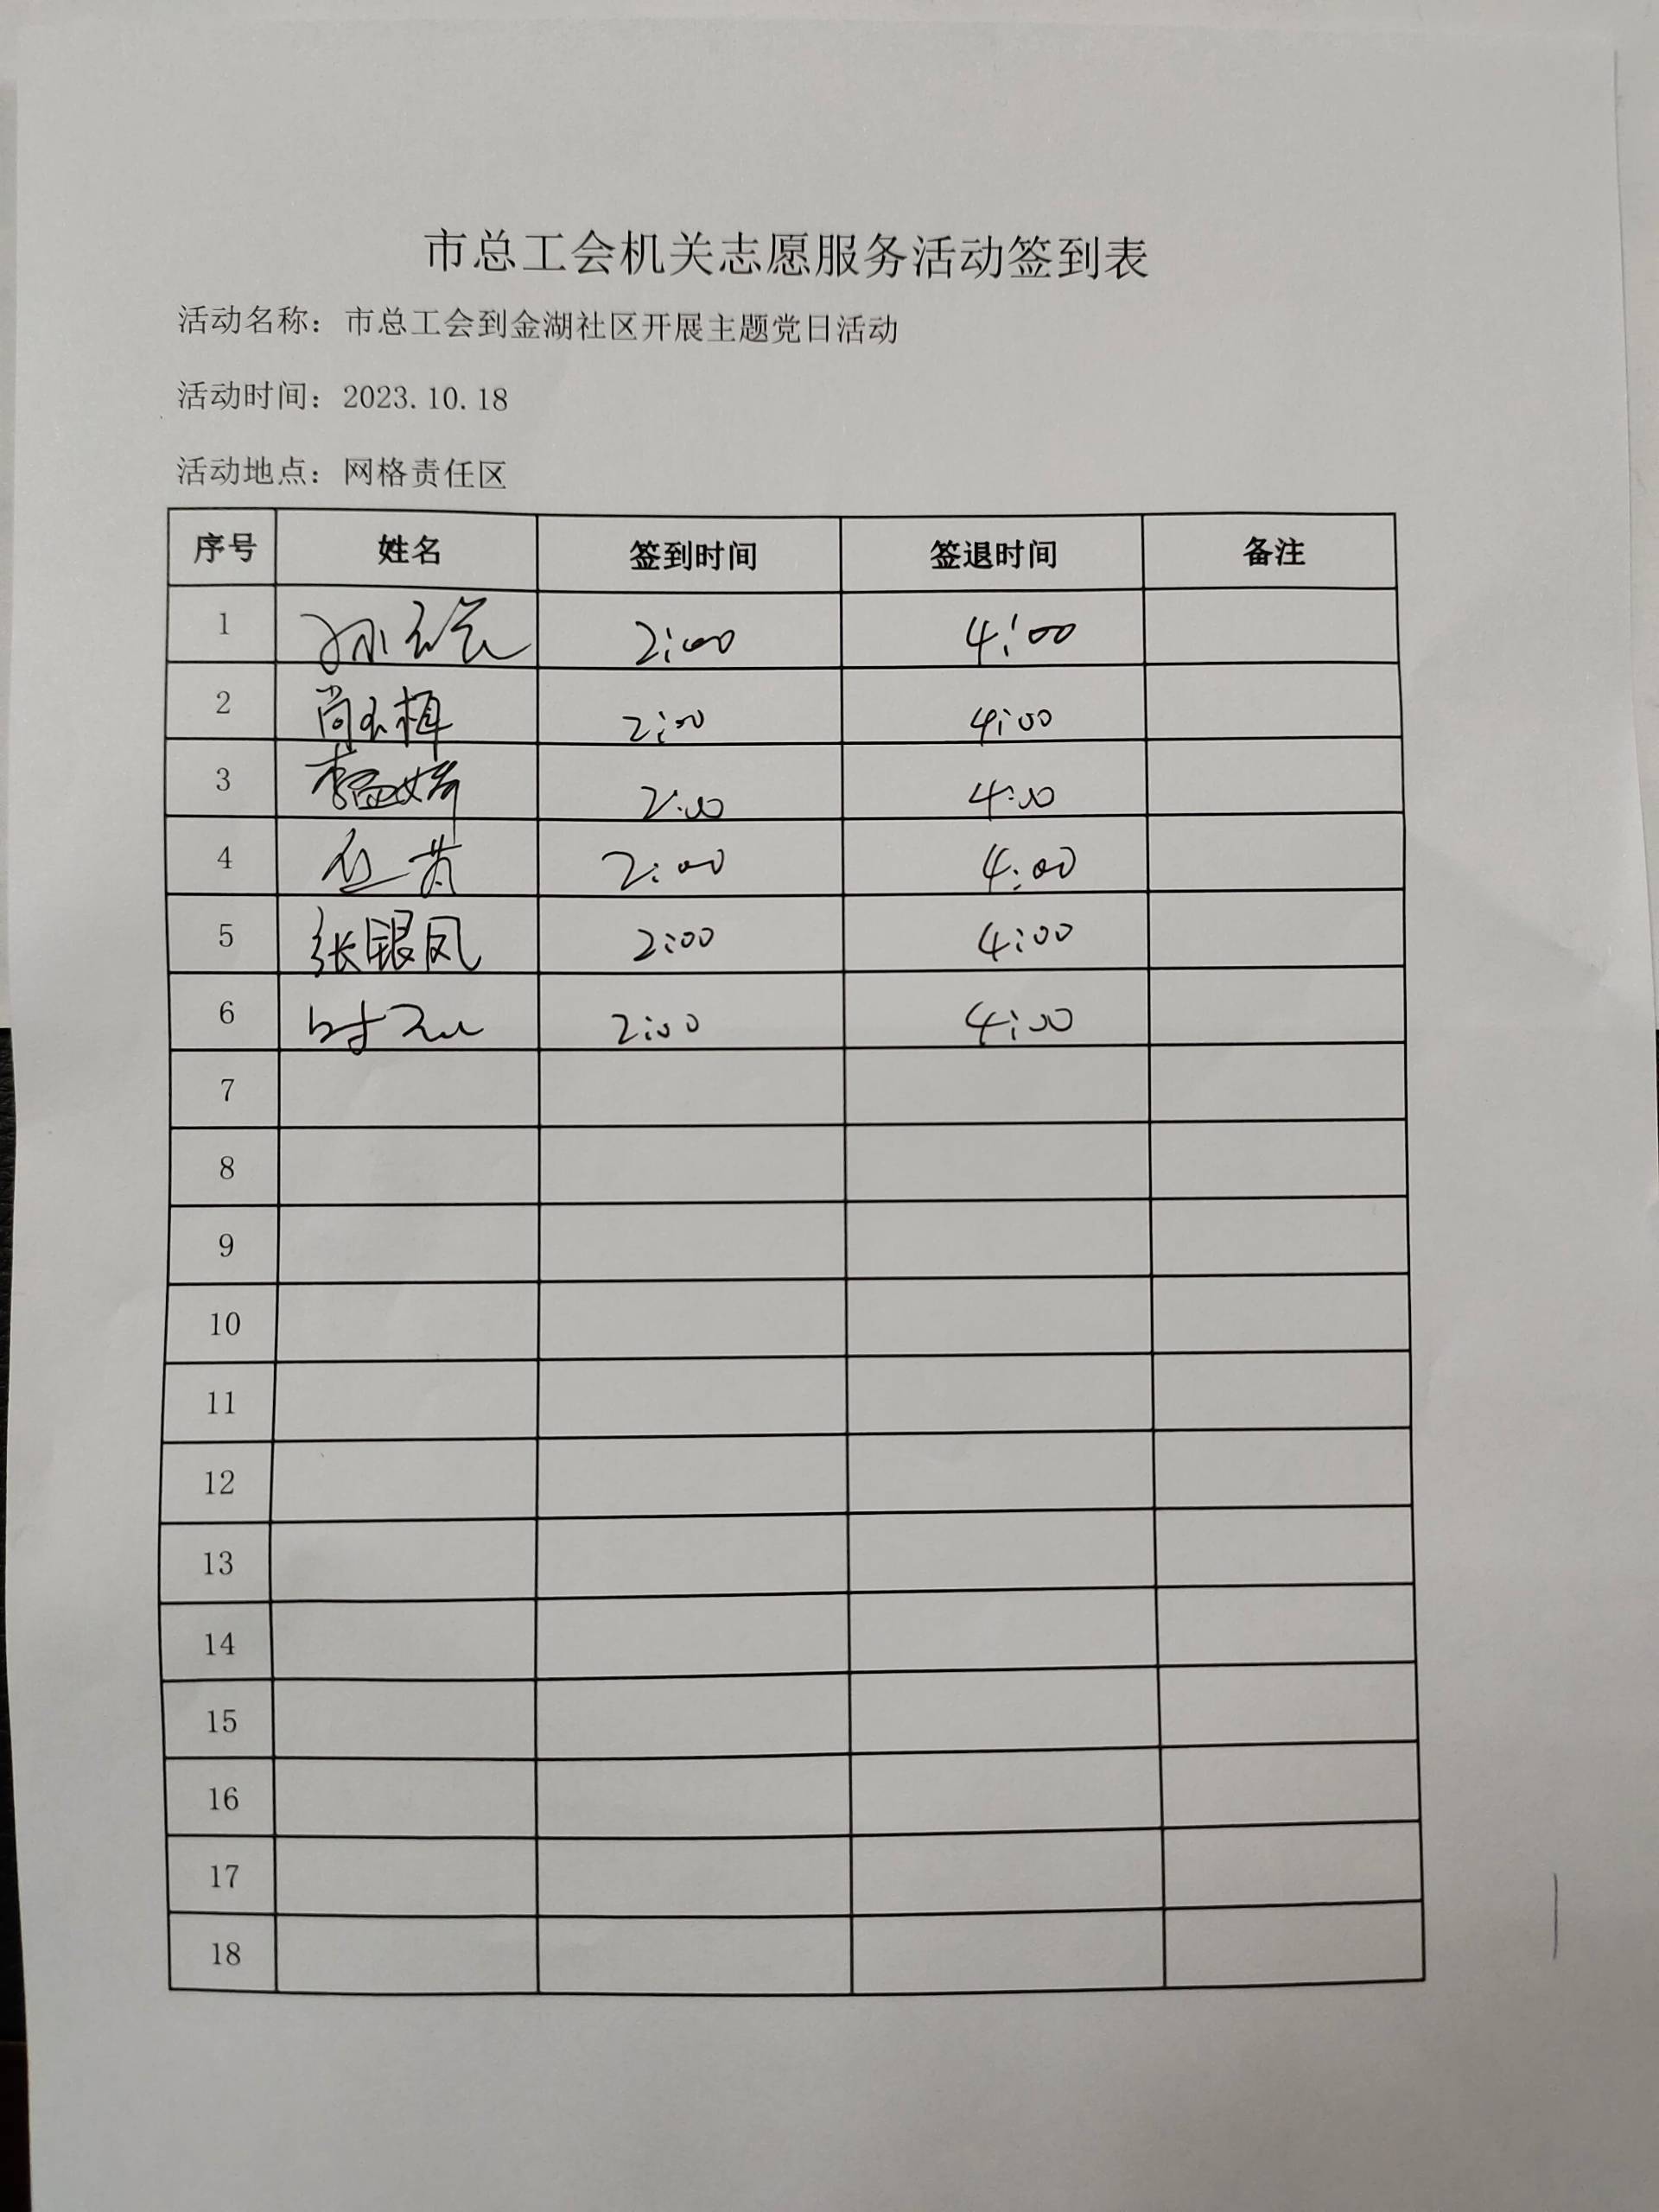 市总工会机关志愿服务活动签到表
活动名称：市总工会到金湖社区开展主题党日活动
活动时间：2023.10.18
活动地点：网格责任区
序号 姓名 签到时间 签退时间 备注
1 2:00 4:00
2 2:00 4:00
3 2:00 4:00
4 2:00 4:00
5 张银凤 2:00 4:00
6 2:00 4:00
7
8
9
10
11
12
13
14
15
16
17
18